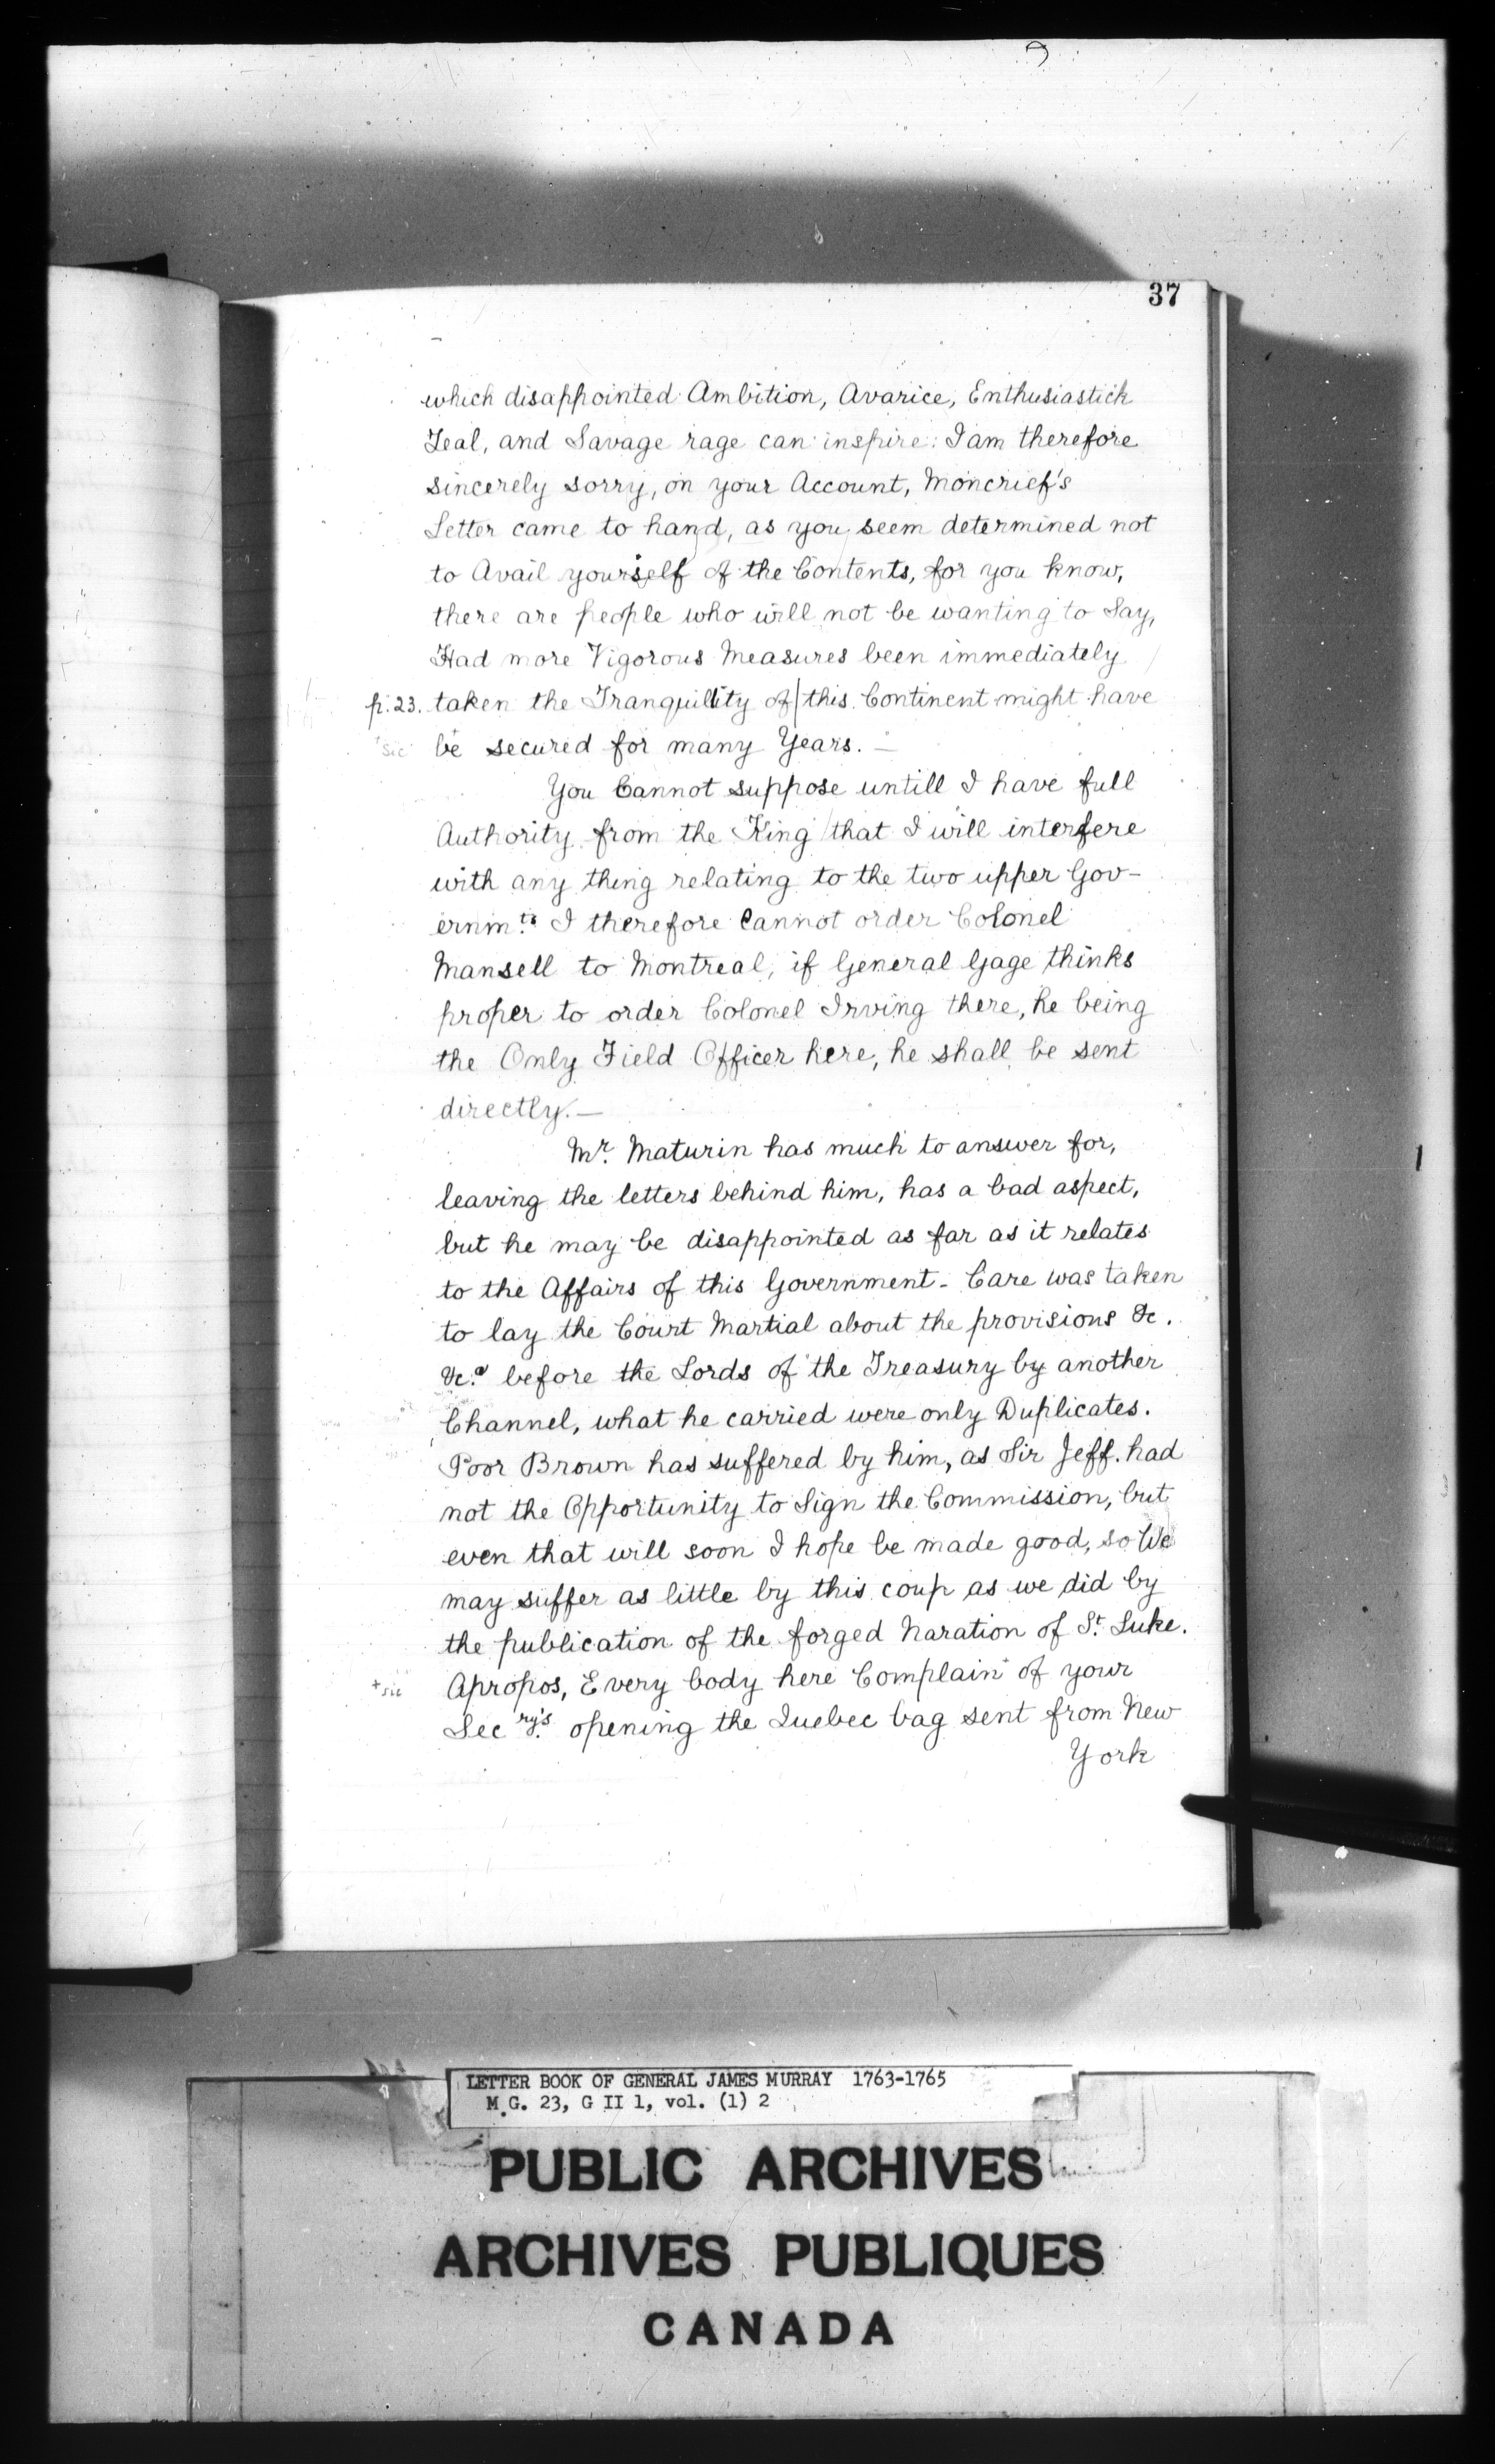 37
which disappointed Ambition, Avarice, Enthusiastick
Zeal, and Savage rage can inspire: I am therefore
sincerely sorry, on your Account, Moncrief's
Letter came to hand, as you seem determined not
to Avail yourself of the Contents, for you know,
there are people who will not be wanting to Say,
Had more Vigorous Measures been immediately
p. 23. taken the Tranquillity of| this Continent might have
+sic be secured for many Years. —
You Cannot suppose untill I have full
Authority from the King that I will interfere
with any thing relating to the two upper Gov-
ernm.ts I therefore Cannot order Colonel
Mansell to Montreal, if General Gage thinks
proper to order Colonel Irving there, he being
the Only Field Officer here, he shall be sent
directly. —
Mr. Maturin has much to answer for,
leaving the letters behind him, has a bad aspect,
but he may be disappointed as far as it relates
to the Affairs of this Government - Care was taken
to lay the Court Martial about the provisions &c.
&c.a before the Lords of the Treasury by another
Channel, what he carried were only Duplicates.
Poor Brown has suffered by him, as Sir Jeff. had
not the Opportunity to Sign the Commission, but
even that will soon I hope be made good, so We
may suffer as little by this coup as we did by
the publication of the forged Naration of St. Luke.
+sic Apropos, Every body here Complain+ of your
Secry's. opening the Quebec bag sent from New
York
LETTER BOOK OF GENERAL JAMES MURRAY 1763-1765
M.G. 23, G II 1, vol. (1) 2
PUBLIC ARCHIVES
ARCHIVES PUBLIQUES
CANADA